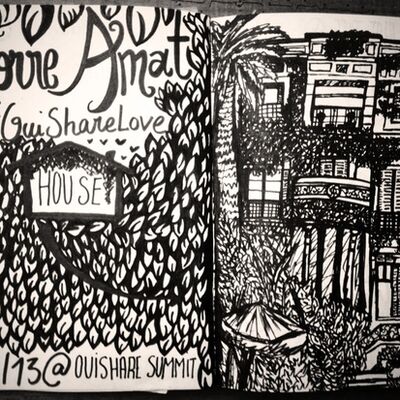 orre Amat
OuiShareLove
HOUSE
/13@ OUISHARE SUMMIT